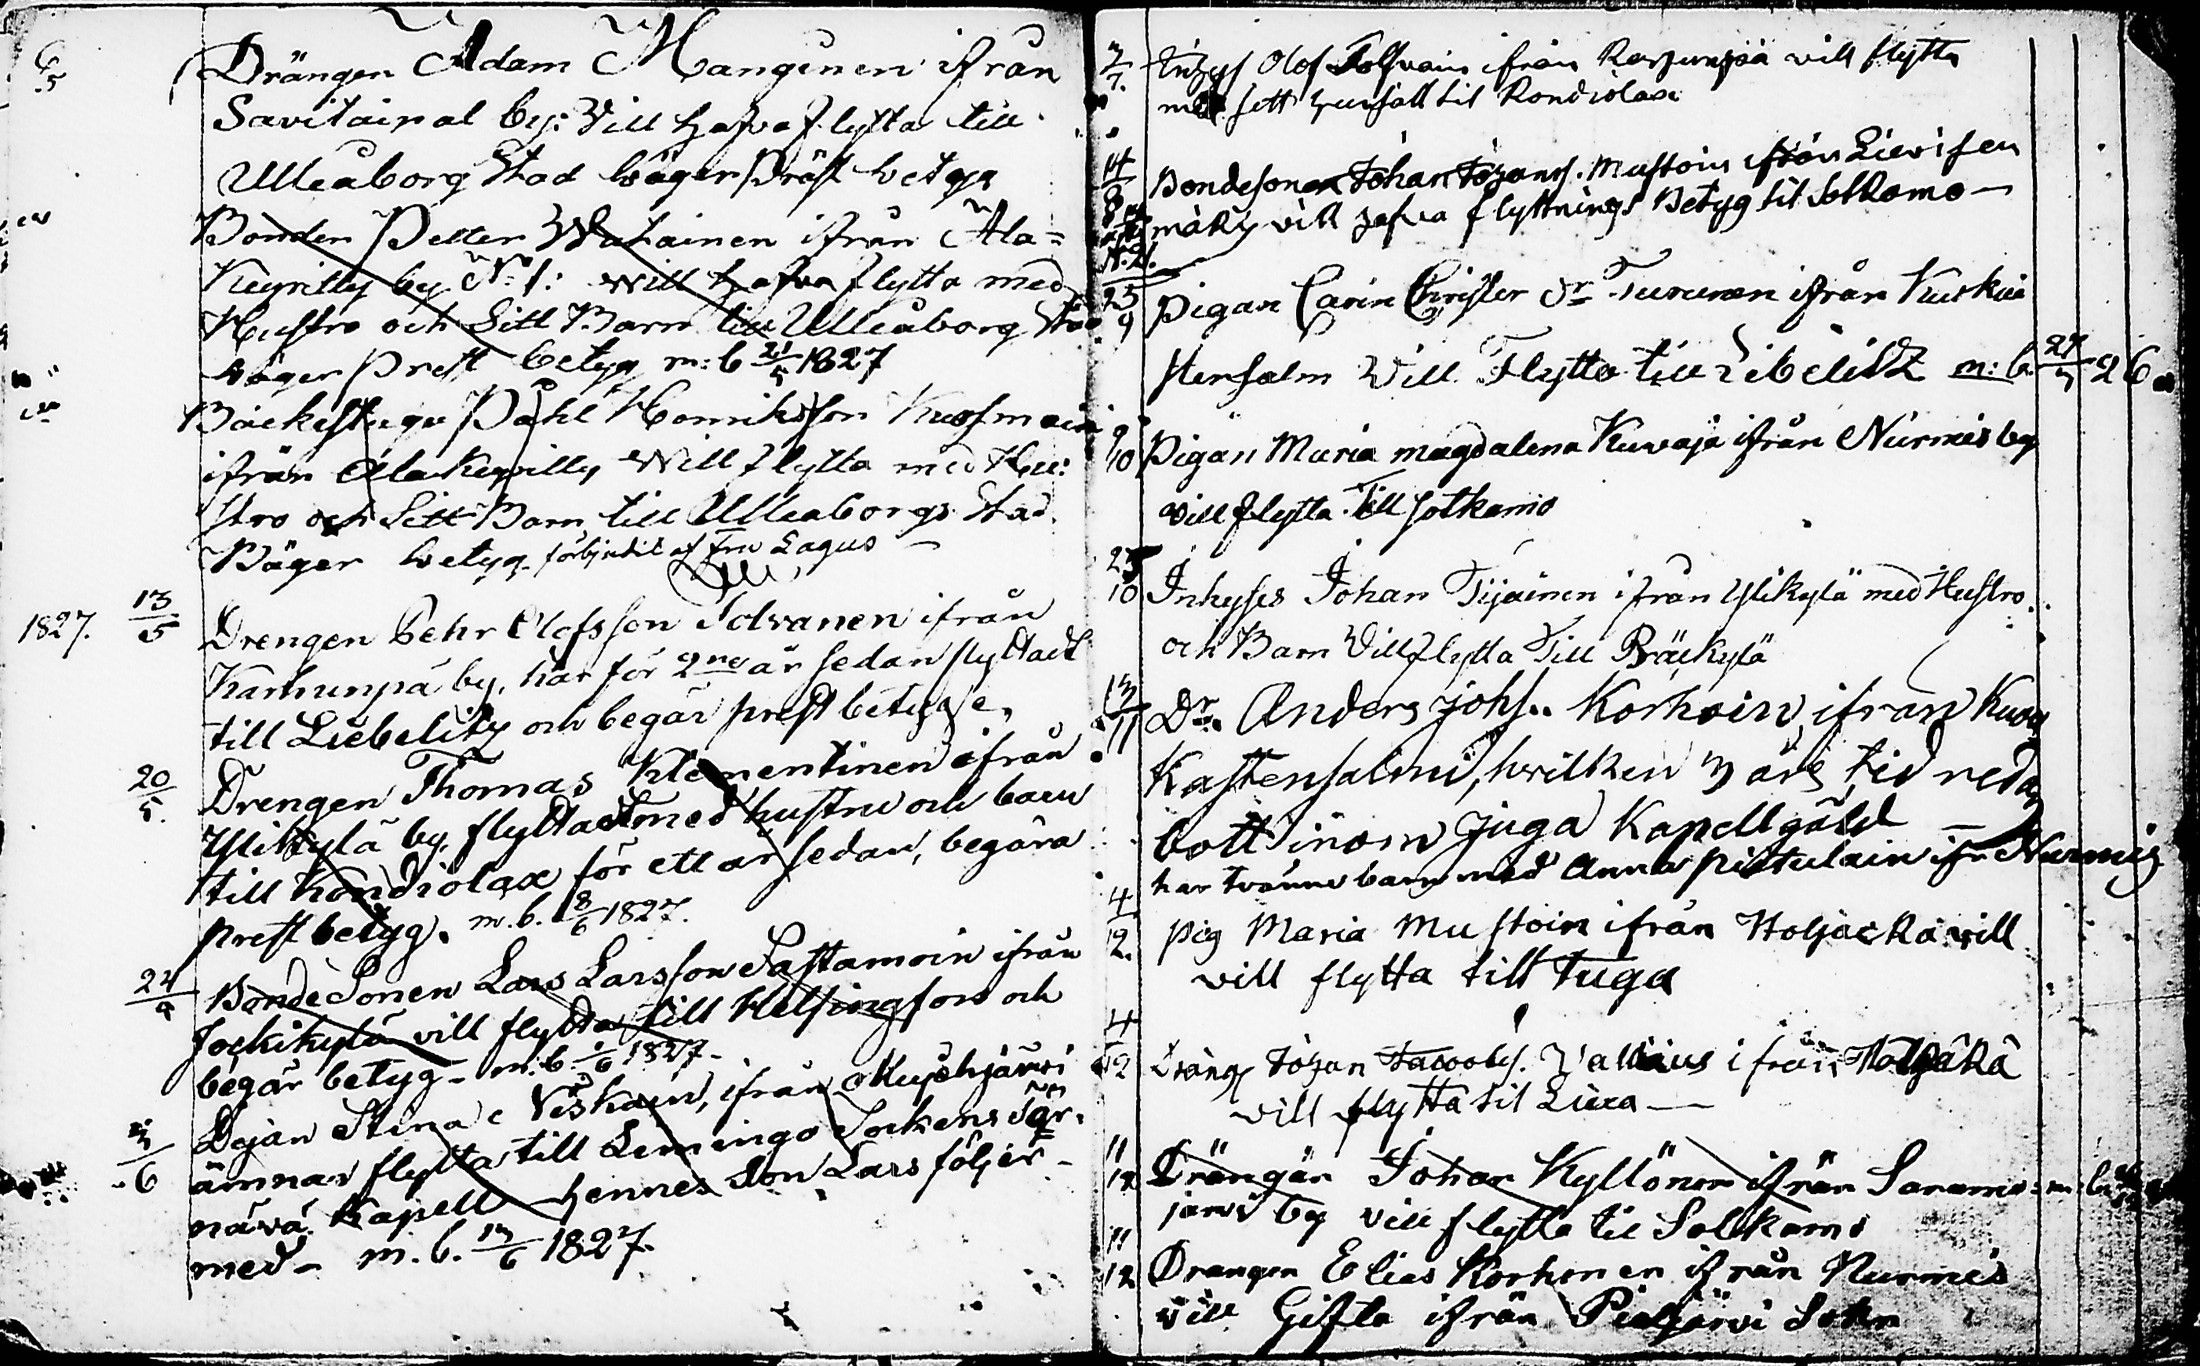 6/5 Drängen Adam Manginen ifrån
Savitaipal by: Vill hafva flytta till
Uleåborg Stad bäger Präst betyg
Bonden Petter ifrån Ala=
Keyritty by N:1: Will hafva flytta med
Hustro och Sitt Barn till Uleåborg
bäger Prest betyg m: b 21/5 1827
Backstugu Påhl Hennriksson
ifrån Alakeyritty Will flytta med Hu:
stro och Sitt Barn till Uleaborgs Stad.
Bäger betyg förbjudit af Fru Lagus
1827. 13/5 Drengen Pehr Olofsson Tolvanen ifrån
Karhunpä by, har för 2ne år sedan flyttadt
till Liebelitz och begär prest betyg
20/5. Drengen Thomas Klementinen ifrån
Ylikylä by, flyttadt med hustru och barn
till Kondiolax för ett år sedan, begära
prest betyg. m.b. 8/6 1827.
BondeSonen Lars Larsson Sastamoin ifrån
Jokikylä vill flytta till Helsingfors och
begär betyg - m:b. 1827.-
3/6 Dejan Stina ifrån
ämnar flytta till Lemingo Sockens
Kapell hennes Son Lars följer -
med - m.b. 13/6 1827.
7/7. Inhys Olof Tolfvain ifrån vill flytta
med sitt hushåll til Kondiolax
14/8 Bondesonen Johan Johans. Mustoin ifrån Lievisen
mäky vill hafva flyttnings Betyg til Sotkamo -
25/9 Pigan Carin Christer Dr Turunen ifrån
stensalm Vill Flytta till Libelitz m: b.
9/10 Pigan Maria magdalena Kuvaja ifrån Nurmis by
vill flytta Till Sotkamo
25/10 Inhyses Johan Tijainen ifrån Ylikylä med Hustro
och Barn Vill flytta Till
13/11 Dr. Anders Johs. Korhoin, ifrån
Kastensalmi, hvilken 3 års tid redan
bott inom Juga Kapellgäld -
har tvänne barn med Anna Pistulain ifr. Nurmis
4/12. pig Maria Mustoin ifrån Holjäckä vill
vill flytta till Juga
4/12 Dräng Johan Jacobs. Vallius ifrån
vill flytta til -
11/12 Drängän Johan Kyllönen ifrån Saramo m: b.
jarvi by vill flytta til Sotkamo
11/12 Drangen Elias Korhonen ifrån Nurmes
vill Gifta ifrån Pielisjärvi Sokn